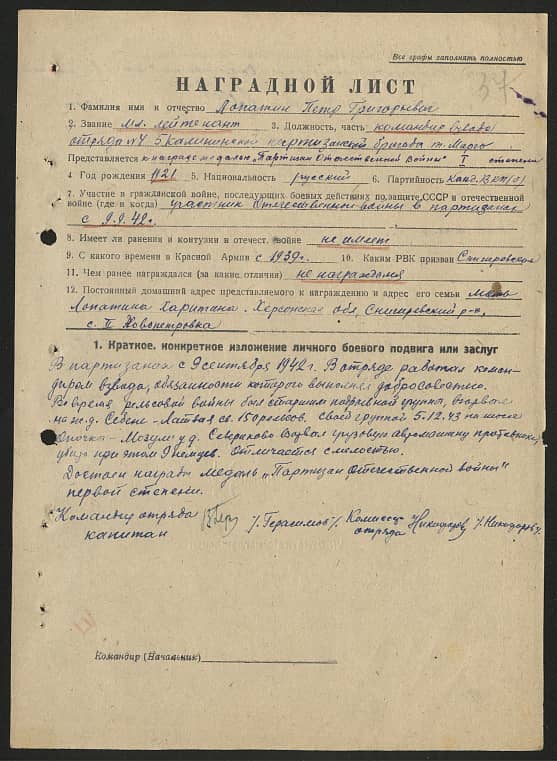 Все графы заполнять полностью
37
НАГРАДНОЙ ЛИСТ
1. Фамилия имя и отчество Лопатин Петр Григорьевич
2. Звание мл. лейтенант 3. Должность, часть командир взвода
отряда №4 5 Калининской партизанской бригады т. Марго
Представляется к награде медалью „Партизан Отечественной войны" I степени
4. Год рождения 1921 5. Национальность русский 6. Партийность Канд. ВКП(б)
7. Участие в гражданской войне, последующих боевых действиях по защите СССР и отечественной
войне (где и когда) участник Отечественной войны в партизанах
с 9.9.42г.
8. Имеет ли ранения и контузии в отечест. войне не имеет
9. С какого времени в Красной Армии с 1939г. 10. Каким РВК призван Снигиревским
11. Чем ранее награждался (за какие отличия) не награждался
12. Постоянный домашний адрес представляемого к награждению и адрес его семьи мать
Лопатина Харитина. Херсонская обл, Снигиревский р-н,
с. II Новопетровка
1. Краткое, конкретное изложение личного боевого подвига или заслуг
В партизанах с 9 сентября 1942г. В отряде работал коман-
диром взвода, обязанности которого выполнял добросовестно.
Во время рельсовой войны был старшим подрывной группы, взорвал
на ж.д. Себеж - Латвия св. 150 рельсов. Своей группой 5.12.43 на шоссе
Опочка - Мозули у д. взорвал грузовую автомашину противника,
убито при этом 9 немцев. Отличается смелостью.
Достоин награды медаль „Партизан Отечественной войны"
первой степени.
Командир отряда /.Герасимов/. Комиссар Никифоров /.Никифоров/.
капитан отряда
Командир (Начальник)